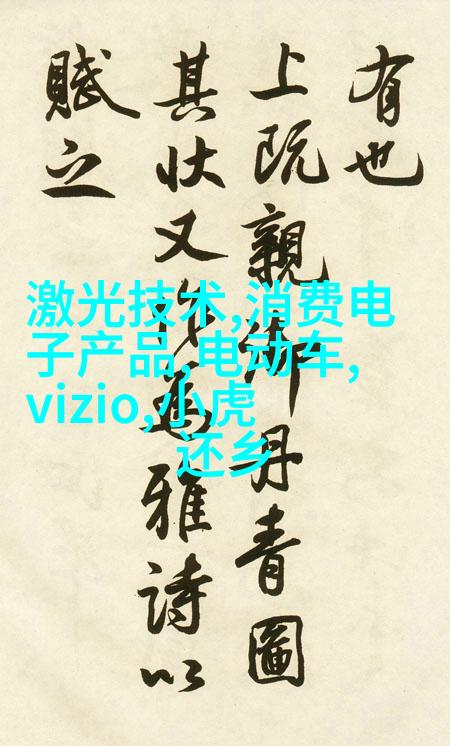 有也
上既親御丹青圖
其状又作為雅詩以
賦之
激光技术,消费电
子产品,电动车,
vizio,小虎
还乡